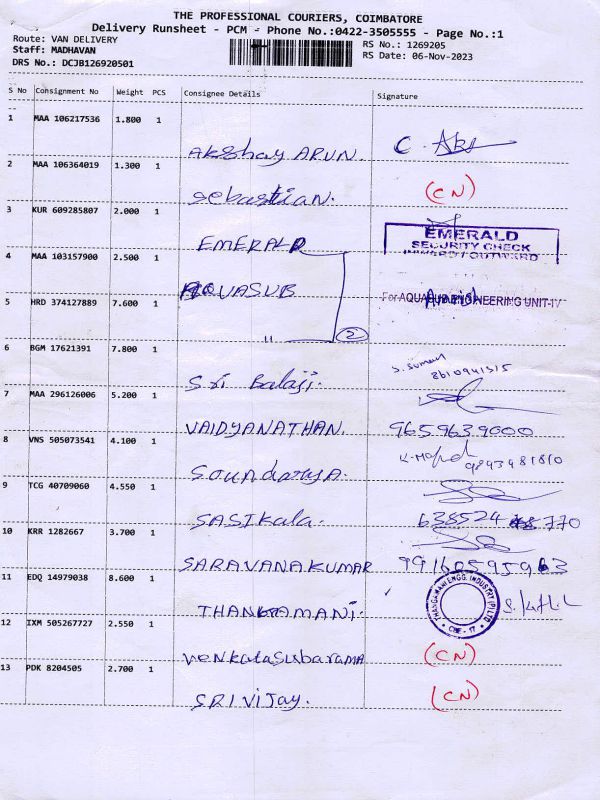 THE PROFESSIONAL COURIERS, COIMBATORE
Delivery Runsheet - PCM - Phone No.:0422-3505555 - Page No.:1
Route: VAN DELIVERY
RS No.: 1269205
Staff: MADHAVAN
RS Date: 06-Nov-2023
DRS No.: DCJB126920501
S No Consignment No Weight PCS Consignee Details Signature
1 MAA 106217536 1.800 1
Akshay ARUN. C. Aks
2 MAA 106364019 1.300 1
Sebastian. (CN)
3 KUR 609285807 2.000 1
EMERALD
EMERALD
SECURITY CHECK
INWARD / OUTWARD
4 MAA 103157900 2.500 1
AQUASUB
For AQUASUB ENGINEERING UNIT-IV
5 HRD 374127889 7.600 1
" 2
6 BGM 17621391 7.800 1
Sri Balaji. S. Suman
8610941315
7 MAA 296126006 5.200 1
VAIDYANATHAN. 9659639000
8 VNS 505073541 4.100 1
Soundarya. 9893481810
9 TCG 40709060 4.550 1
SASIKala. 638524 770
10 KRR 1282667 3.700 1
SARAVANAKUMAR
11 EDQ 14979038 8.600 1
THANGAMANI.
THANGAMANI ENGG. INDUSTRY (P) LTD
CBE - 17
12 IXM 505267727 2.550 1
Venkatasubarama (CN)
13 PDK 8204505 2.700 1
SRIVIJAY. (CN)